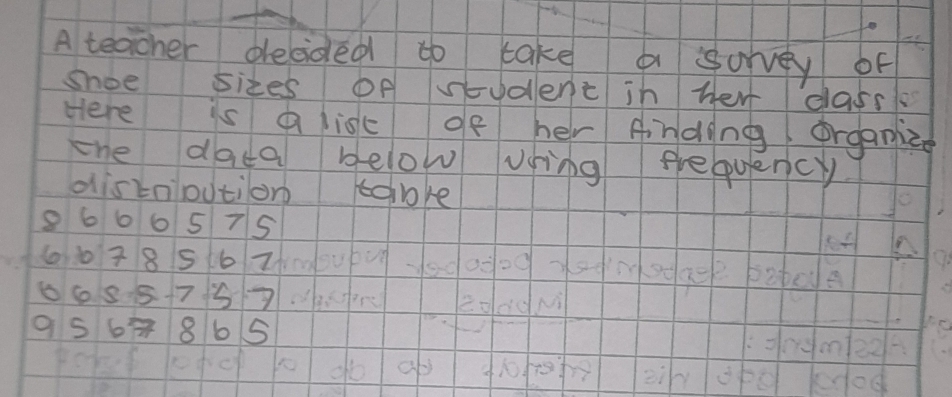 A teacher decided to take a survey of
shoe sizes of student in her class
Here is a list of her finding. Organize
the data below using frequency
distribution table
8 6 6 6 5 7 5
6 6 7 8 5 6 7
6 6 8 5 7 5 7
9 5 6 7 8 6 5